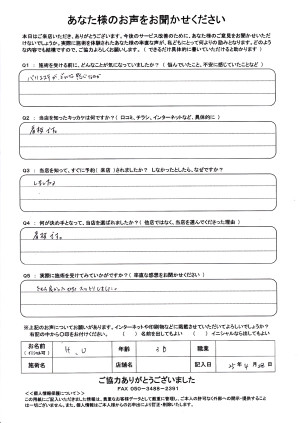 あなた様のお声をお聞かせください
本日はご来店いただき、ありがとうございます。今後のサービス改善のために、あなた様のご意見をお聞かせいただ
けないでしょうか。実際に施術を体験されたあなた様の率直な声が、私どもにとって何よりの励みとなります。どのよう
な内容でも結構ですので、ご協力よろしくお願いします。（できるだけ具体的に書いていただけると助かります）
Q1： 施術を受ける前に、どんなことが気になっていましたか？（悩んでいたこと、不安に感じていたことなど）
Q2： 当店を知ったキッカケは何ですか？（口コミ、チラシ、インターネットなど、具体的に）
看板
Q3： 当店を知って、すぐに予約（来店）されましたか？ しなかったとしたら、なぜですか？
しました
Q4： 何が決め手となって、当店を選ばれましたか？（他店ではなく、当店を選んでくださった理由）
看板
Q5： 実際に施術を受けてみていかがですか？（率直な感想をお聞かせください）
※上記のお声についてお願いです。インターネットや印刷物などに掲載させていただいてよろしいでしょうか？
右記の中から○印をお付けください。 （ ）名前を出してもよい （ ）イニシャルなら出してもよい
お名前 H.U 年齢 30 職業
施術名 店舗名 記入日 25年4月28日
ご協力ありがとうございました
FAX 050-3488-2391
＜＜個人情報保護について＞＞
この用紙にご記入いただきました情報は、貴重なお客様データとして厳重に管理し、ご本人の許可なく外部への開示・提供すること
は一切ございません。また、個人情報はご本人からのお申出により訂正・削除いたします。